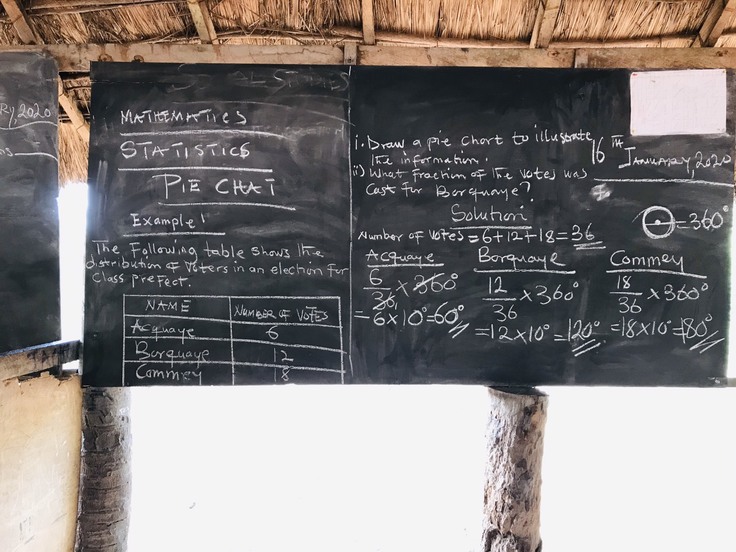 RY, 2020
MATHEMATICS
STATISTICS
PIE CHAT
Example 1
The Following table shows the
distribution of Voters in an election for
Class prefect.
NAME NUMBER OF VOTES
Acquaye 6
Borquaye 12
Commey 8
i. Draw a pie chart to illustrate
the information.
ii) What fraction of the votes was
Cast for Borquaye?
16TH JANUARY, 2020
Solution
= 360°
Number of votes = 6+12+18 = 36
Acquaye
6/36 × 360°
= 6 × 10° = 60°
Borquaye
12/36 × 360°
= 12 × 10° = 120°
Commey
18/36 × 360°
= 18 × 10° = 180°